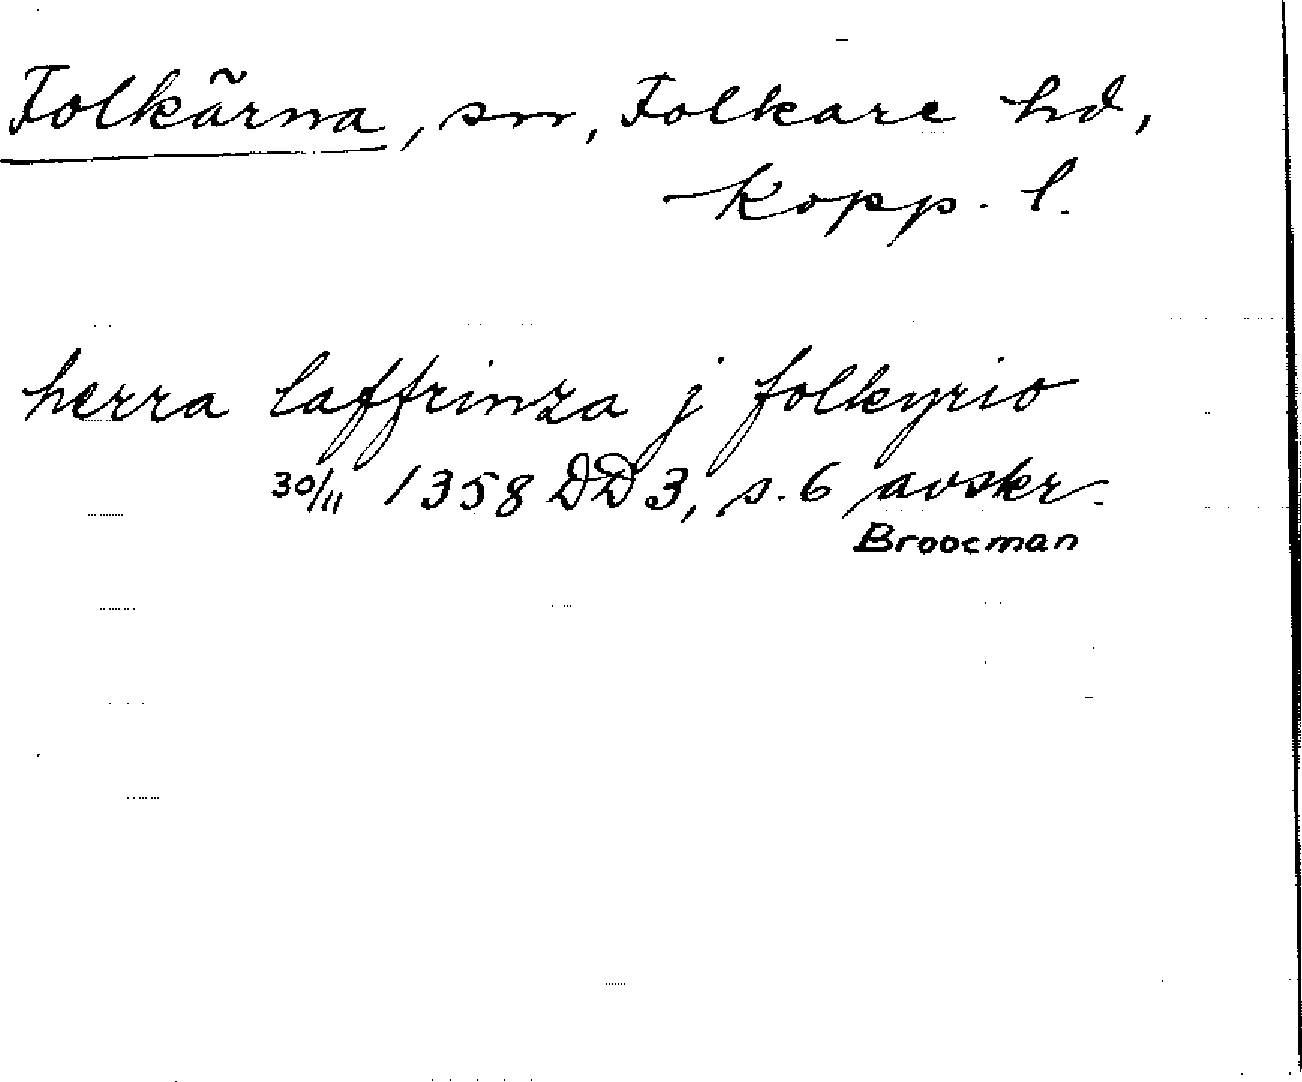 Folkärna, sn, Folkare hd,
Kopp. l.
herra laffrinza j folkyrio
30/11 1358 DD 3, s. 6 avskr.
Broocman